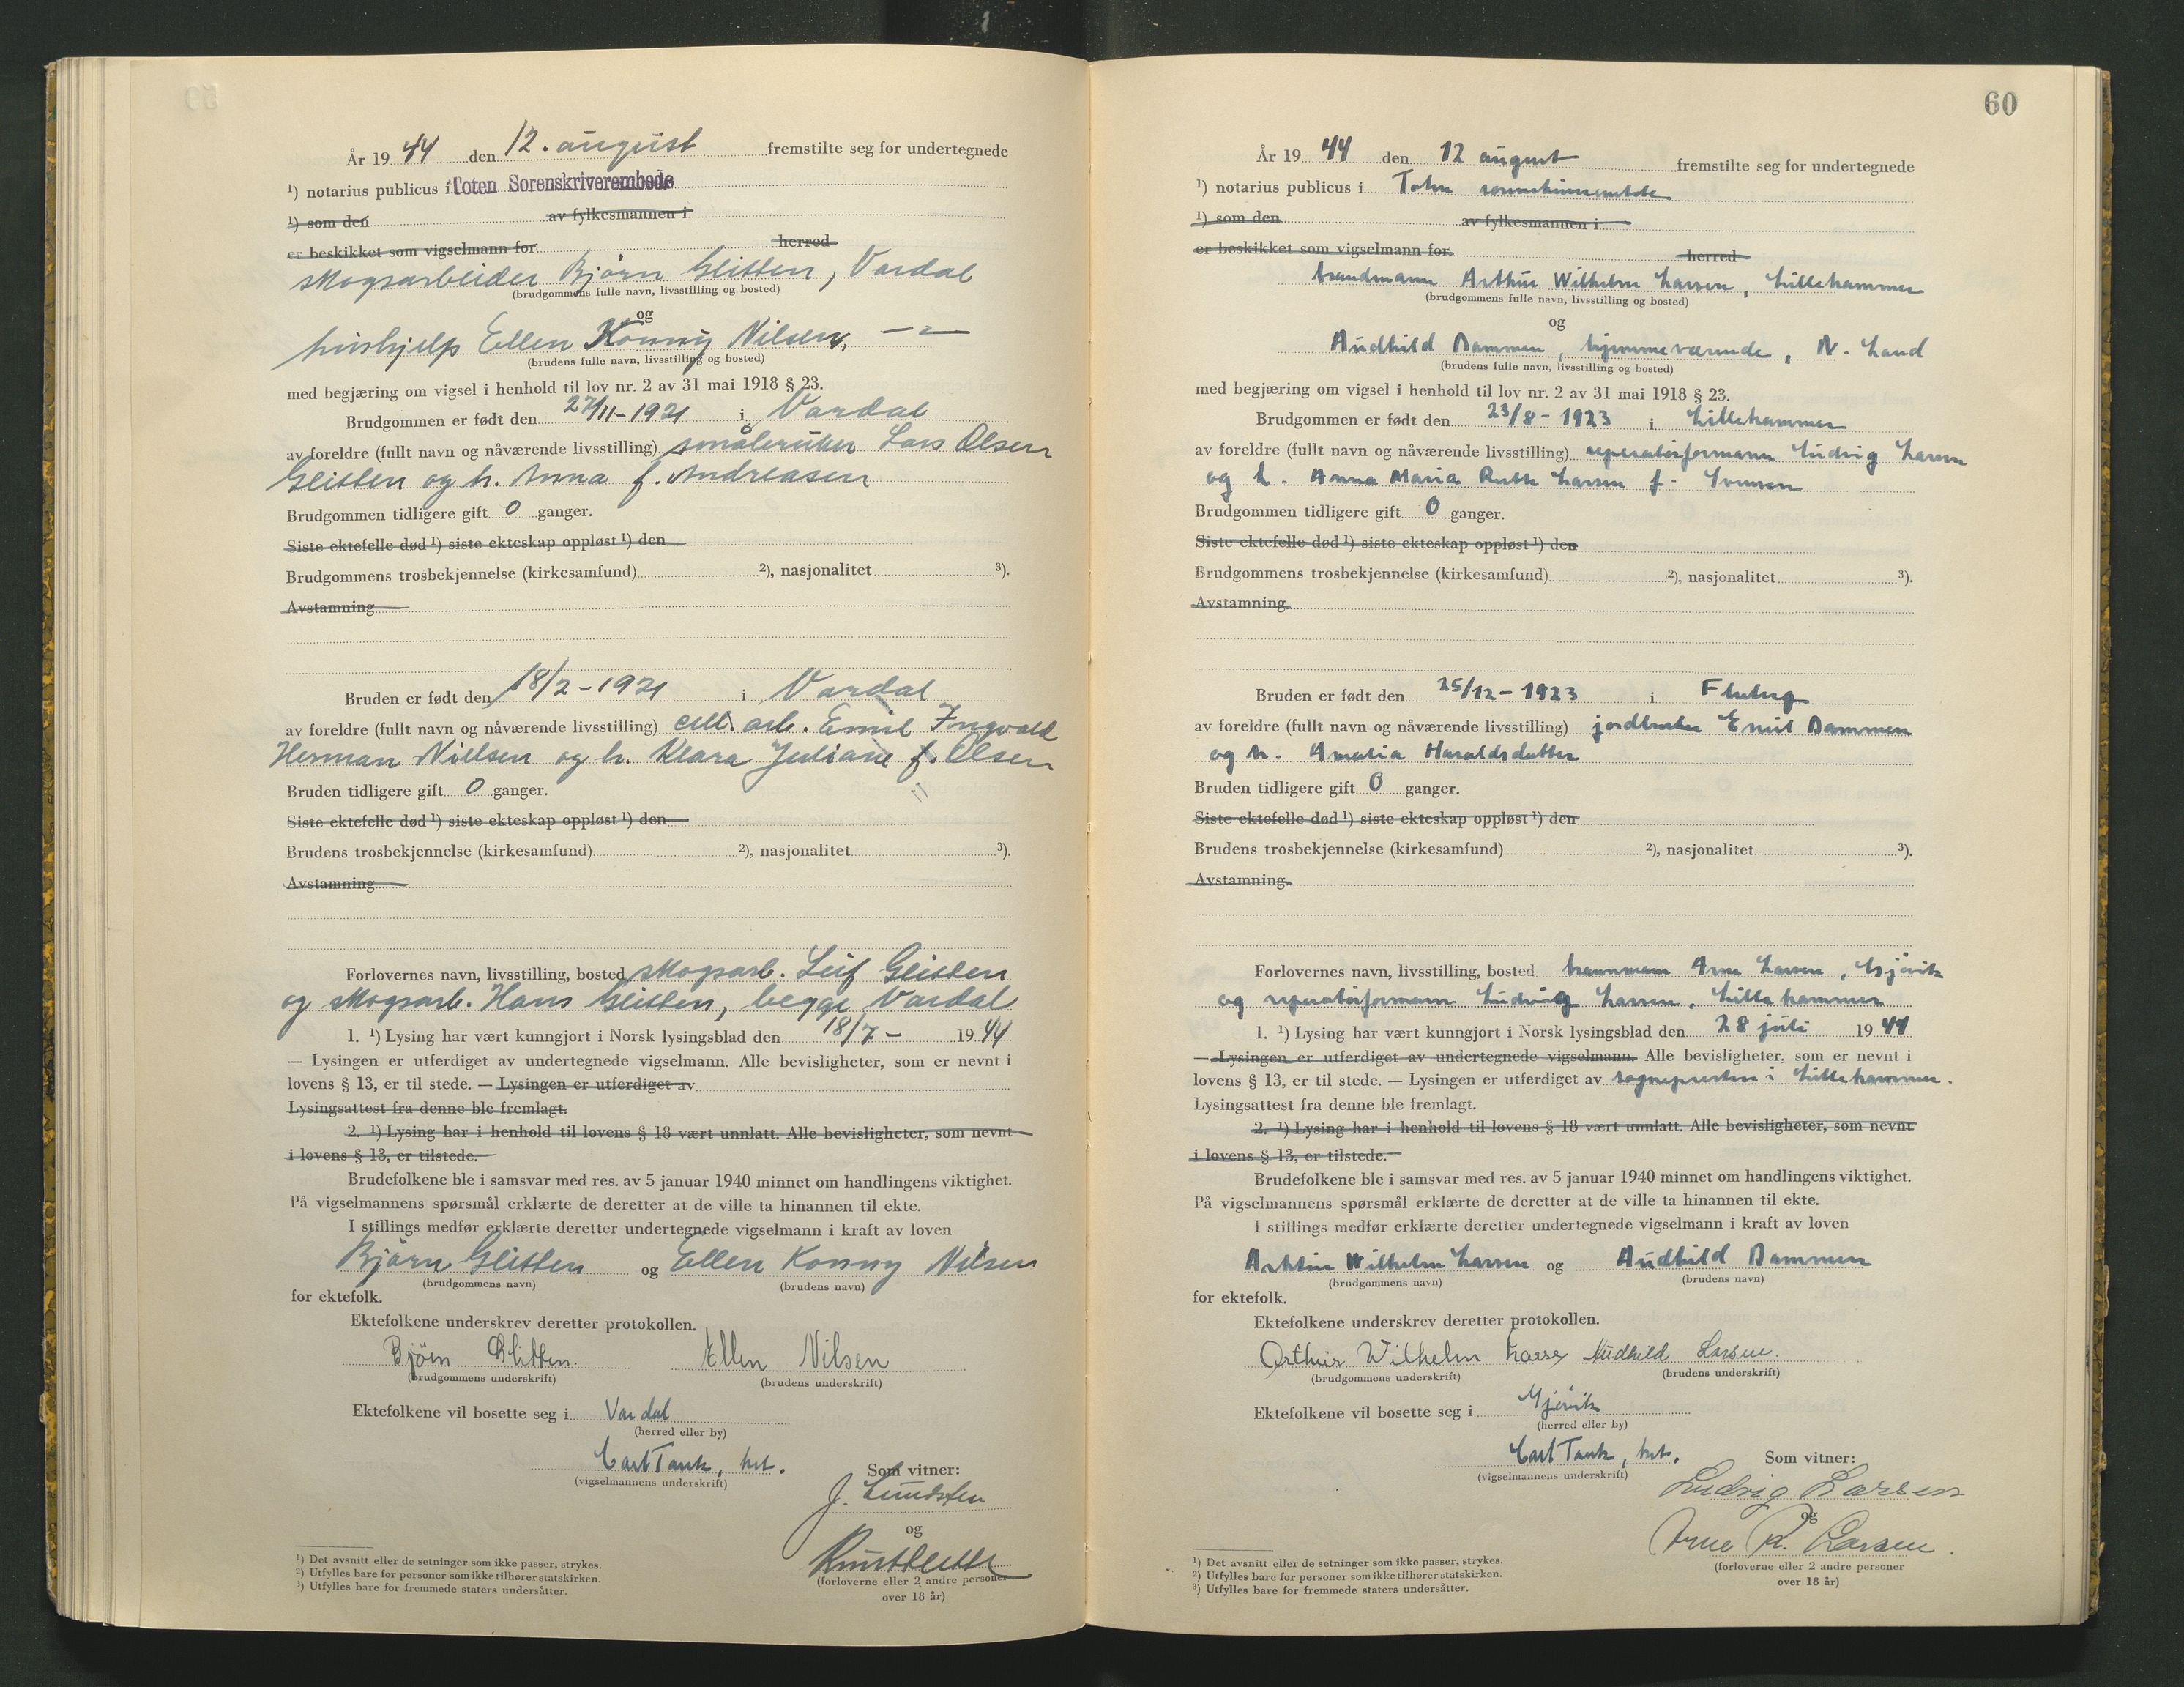 År 1944 den 12. august fremstilte seg for undertegnede
¹) notarius publicus i Toten Sorenskriverembede
¹) som den av fylkesmannen i
er beskikket som vigselmann for herred
skogsarbeider Bjørn Glitten, Vardal
(brudgommens fulle navn, livsstilling og bosted)
og
hushjelp Ellen Konny Nilsen, — " —
(brudens fulle navn, livsstilling og bosted)
med begjæring om vigsel i henhold til lov nr. 2 av 31 mai 1918 § 23.
Brudgommen er født den 27/11-1921 i Vardal
av foreldre (fullt navn og nåværende livsstilling) småbruker Lars Olsen
Glitten og h. Anna f. Andreasen
Brudgommen tidligere gift 0 ganger.
Siste ektefelle død ¹) siste ekteskap oppløst ¹) den
Brudgommens trosbekjennelse (kirkesamfund) ²), nasjonalitet ³).
Avstamning
Bruden er født den 18/2-1921 i Vardal
av foreldre (fullt navn og nåværende livsstilling) cell. arb. Emil Ingvald
Herman Nilsen og h. Klara Juliane f. Olsen
Bruden tidligere gift 0 ganger.
Siste ektefelle død ¹) siste ekteskap oppløst ¹) den
Brudens trosbekjennelse (kirkesamfund) ²), nasjonalitet ³).
Avstamning
Forlovernes navn, livsstilling, bosted skogsarb. Leif Glitten
og skogsarb. Hans Glitten, begge Vardal
1. ¹) Lysing har vært kunngjort i Norsk lysingsblad den 18/7- 1944
— Lysingen er utferdiget av undertegnede vigselmann. Alle bevisligheter, som er nevnt i
lovens § 13, er til stede. — Lysingen er utferdiget av
Lysingsattest fra denne ble fremlagt.
2. ¹) Lysing har i henhold til lovens § 18 vært unnlatt. Alle bevisligheter, som nevnt
i lovens § 13, er tilstede.
Brudefolkene ble i samsvar med res. av 5 januar 1940 minnet om handlingens viktighet.
På vigselmannens spørsmål erklærte de deretter at de ville ta hinannen til ekte.
I stillings medfør erklærte deretter undertegnede vigselmann i kraft av loven
Bjørn Glitten og Ellen Konny Nilsen
(brudgommens navn) (brudens navn)
for ektefolk.
Ektefolkene underskrev deretter protokollen.
Bjørn Glitten. Ellen Nilsen
(brudgommens underskrift) (brudens underskrift)
Ektefolkene vil bosette seg i Vardal
(herred eller by)
Carl Tank, kst.
(vigselmannens underskrift)
Som vitner:
J. Lundsten
og
(forloverne eller 2 andre personer
over 18 år)
¹) Det avsnitt eller de setninger som ikke passer, strykes.
²) Utfylles bare for personer som ikke tilhører statskirken.
³) Utfylles bare for fremmede staters undersåtter.
60
År 1944 den 12 august fremstilte seg for undertegnede
¹) notarius publicus i Toten sorenskriverembede
¹) som den av fylkesmannen i
er beskikket som vigselmann for herred
brandmann Arthur Wilhelm Larsen, Lillehammer
(brudgommens fulle navn, livsstilling og bosted)
og
Audhild Dammen, hjemmeværende, N. Land
(brudens fulle navn, livsstilling og bosted)
med begjæring om vigsel i henhold til lov nr. 2 av 31 mai 1918 § 23.
Brudgommen er født den 23/8-1923 i Lillehammer
av foreldre (fullt navn og nåværende livsstilling) reperatørformann Ludvig Larsen
og h. Anna Maria Ruth Larsen f. Svensen
Brudgommen tidligere gift 0 ganger.
Siste ektefelle død ¹) siste ekteskap oppløst ¹) den
Brudgommens trosbekjennelse (kirkesamfund) ²), nasjonalitet ³).
Avstamning
Bruden er født den 25/12-1923 i Fluberg
av foreldre (fullt navn og nåværende livsstilling) jordbruker Emil Dammen
og h. Amalia Haraldsdatter
Bruden tidligere gift 0 ganger.
Siste ektefelle død ¹) siste ekteskap oppløst ¹) den
Brudens trosbekjennelse (kirkesamfund) ²), nasjonalitet ³).
Avstamning
Forlovernes navn, livsstilling, bosted Arne Larsen, Gjøvik
og reperatørformann Ludvig Larsen, Lillehammer
1. ¹) Lysing har vært kunngjort i Norsk lysingsblad den 28 juli 1944
— Lysingen er utferdiget av undertegnede vigselmann. Alle bevisligheter, som er nevnt i
lovens § 13, er til stede. — Lysingen er utferdiget av sognepresten i Lillehammer.
Lysingsattest fra denne ble fremlagt.
2. ¹) Lysing har i henhold til lovens § 18 vært unnlatt. Alle bevisligheter, som nevnt
i lovens § 13, er tilstede.
Brudefolkene ble i samsvar med res. av 5 januar 1940 minnet om handlingens viktighet.
På vigselmannens spørsmål erklærte de deretter at de ville ta hinannen til ekte.
I stillings medfør erklærte deretter undertegnede vigselmann i kraft av loven
Arthur Wilhelm Larsen og Audhild Dammen
(brudgommens navn) (brudens navn)
for ektefolk.
Ektefolkene underskrev deretter protokollen.
Arthur Wilhelm Larsen Audhild Larsen.
(brudgommens underskrift) (brudens underskrift)
Ektefolkene vil bosette seg i Gjøvik
(herred eller by)
Carl Tank, kst.
(vigselmannens underskrift)
Som vitner:
Ludvig Larsen
og
Arne R. Larsen.
(forloverne eller 2 andre personer
over 18 år)
¹) Det avsnitt eller de setninger som ikke passer, strykes.
²) Utfylles bare for personer som ikke tilhører statskirken.
³) Utfylles bare for fremmede staters undersåtter.